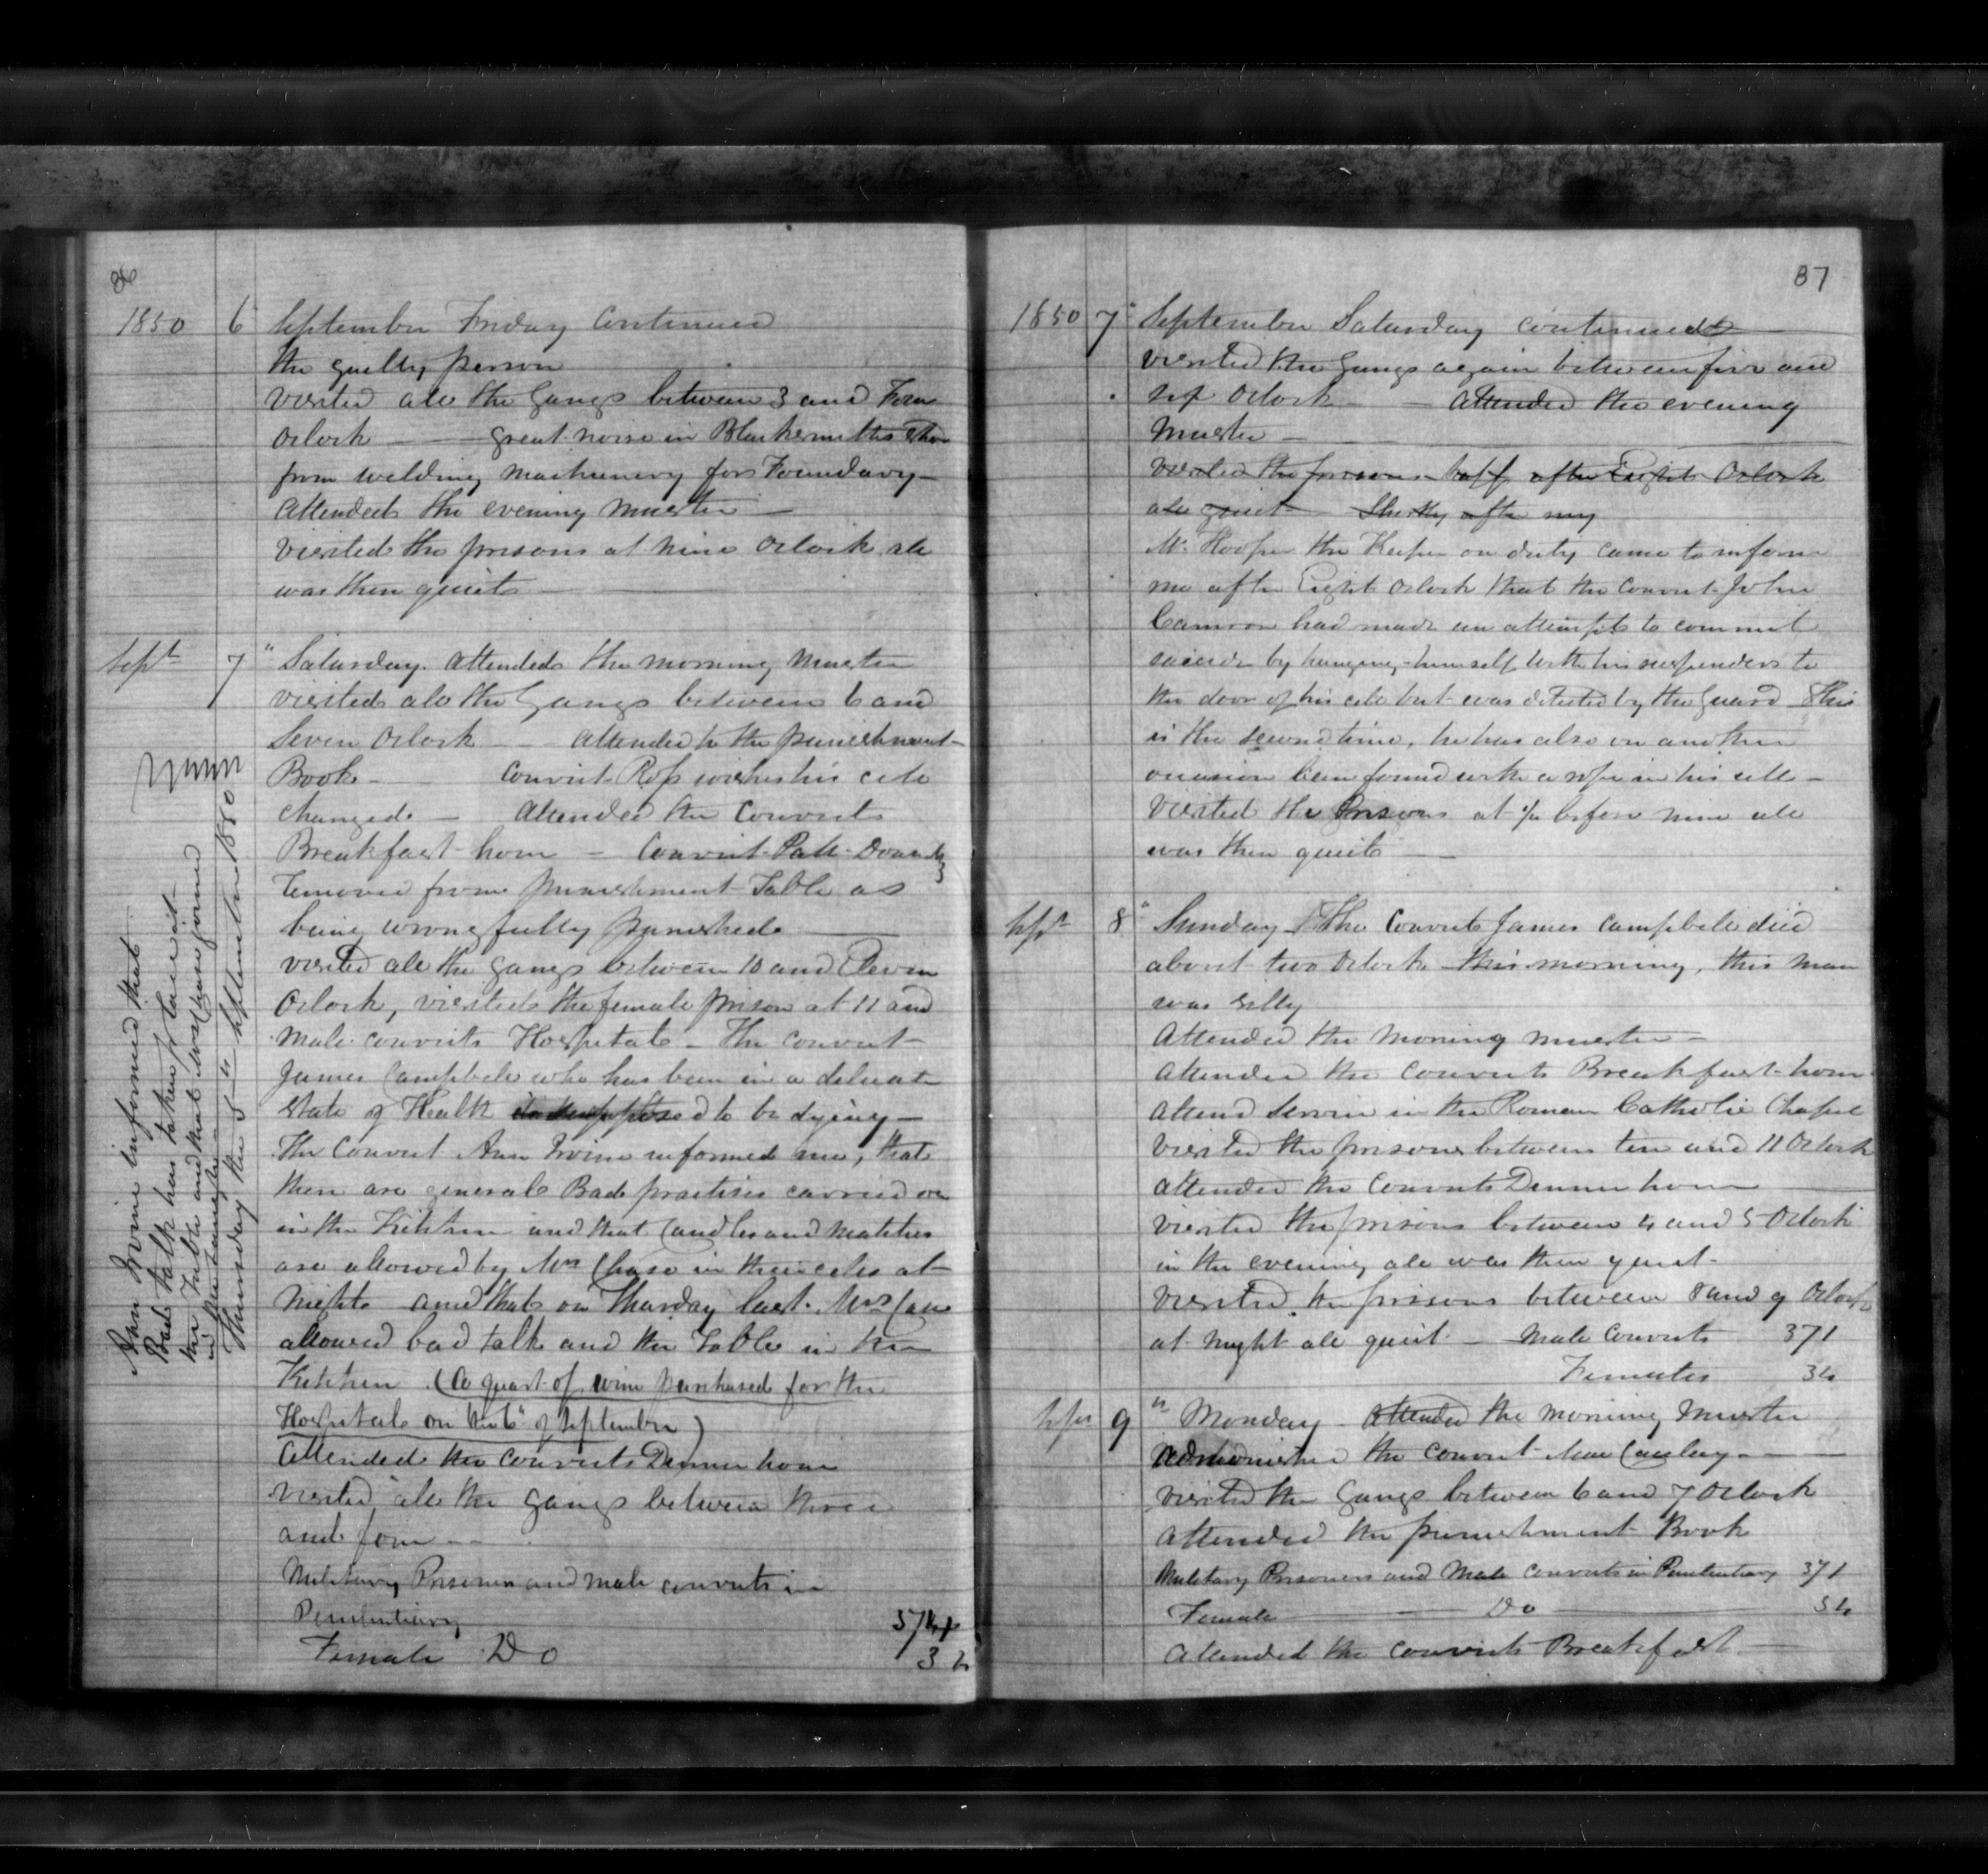 86
1850 6 September Friday Continued
the guilty person
visited all the Gangs between 3 and Four
Oclock — great noise in Blacksmiths Shop
from welding machinery for Foundary —
attended the evening muster —
visited the prisons at nine Oclock all
was then quiet —
Sept 7 " Saturday attended the morning muster
visited all the Gangs between 6 and
Seven Oclock — attended to the punishment
Book — Convict Ross wishes his cell
changed — attended the Convicts
Breakfast hour — Convict Patk
removed from punishment Table as
being wrongfully punished —
visited all the gangs between 10 and Eleven
Oclock, visited the female prison at 11 and
male convicts Hospital — The convict
James Campbell who has been in a delicate
state of Health supposed to be dying —
The Convict Ann Irvine informed me, that
there are general Bad practises carried on
in the Kitchen and that Candles and matches
are allowed by Mrs Chase in their cells at
night and that on Thursday last Mrs
allowed bad talk and the Table in the
Kitchen (a quart of wine purchased for the
Hospital on the 6" of September)
attended the convicts Dinner hour
visited all the gangs between three
and four —
Military Prisoners and male convicts in
Penitentiary
Female Do
Ann Irvine informed that
Bad talk has taken place at
the Table and that Mrs Chase joined
in
Thursday the 5" September 1850
87
1850 7" September Saturday continued
visited the Gangs again between five and
six Oclock — attended the evening
muster —
visited the prisons half after Eight Oclock
all quiet Shortly after my
Mr Hooper the Keeper on duty came to inform
me after Eight Oclock that the convict John
Cameron had made an attempt to commit
suicide by hanging himself with his suspenders to
the door of his cell but was detected by the Guard This
is the second time, he has also on another
occasion been found with a rope in his cell —
visited the Prisons at ¼ before nine all
was then quiet —
Sept 8" Sunday The Convict James Campbell died
about two Oclock this morning, this man
was silly
attended the morning muster —
attended the convicts Breakfast hour
attend Service in the Roman Catholic Chapel
visited the prisons between ten and 11 Oclock
attended the Convicts Dinner hour —
visited the prisons between 4 and 5 Oclock
in the evening all was then quiet —
visited the prisons between 8 and 9 Oclock
at night all quiet — male Convicts 371
Females 34
Sept 9 " Monday — attended the morning muster
admonished the convict
visited the Gangs between 6 and 7 Oclock
attended the punishment Book
Military Prisoners and Male convicts in Penitentiary 371
Female — Do — 34
attended the convicts Breakfast